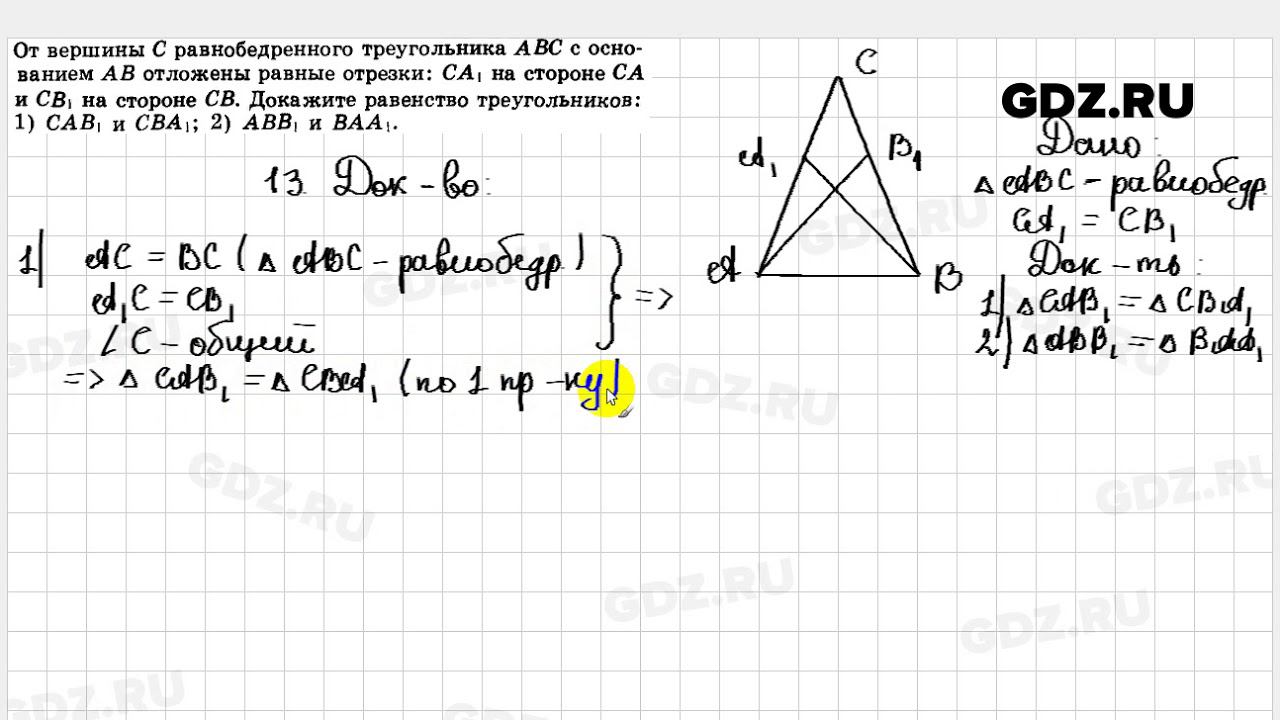 От вершины C равнобедренного треугольника ABC с осно-
ванием AB отложены равные отрезки: CA₁ на стороне CA
и CB₁ на стороне CB. Докажите равенство треугольников:
1) CAB₁ и CBA₁; 2) ABB₁ и BAA₁.
13. Док-во:
1) AC = BC (△ ABC - равнобедр)
A₁C = CB₁
∠C - общий
} =>
=> △ CAB₁ = △ CBA₁ (по 1 пр-ку)
C
A₁
B₁
A
B
GDZ.RU
Дано:
△ ABC - равнобедр.
CA₁ = CB₁
Док-ть:
1) △ CAB₁ = △ CBA₁
2) △ ABB₁ = △ BAA₁
GDZ.RU
GDZ.RU
GDZ.RU
GDZ.RU
GDZ.RU
GDZ.RU
GDZ.RU
GDZ.RU
GDZ.RU